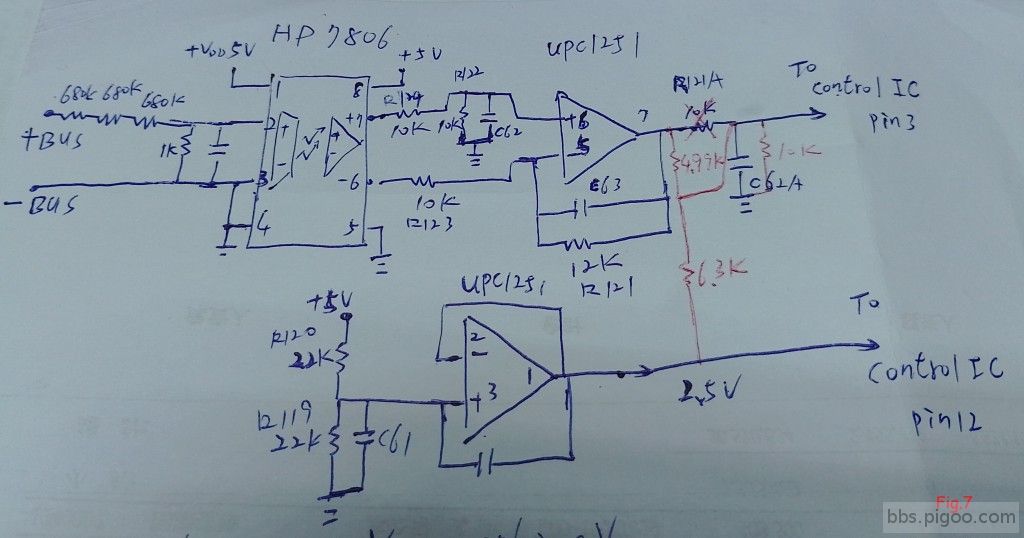 HP 7806
+VDD 5V
+5V
UPC1251
680K 680K 680K
+BUS
1K
-BUS
1
2
3
4
8
+7
-6
5
R124
10K
R122
10K
C62
10K
R123
+6
-5
7
C63
12K
R121
R121A
10K
4.99K
C62A
10K
6.3K
TO
control IC
pin3
UPC1251
+5V
R120
22K
R119
22K
C61
2
-
+3
1
2.5V
TO
control IC
pin12
Fig.7
bbs.pigoo.com